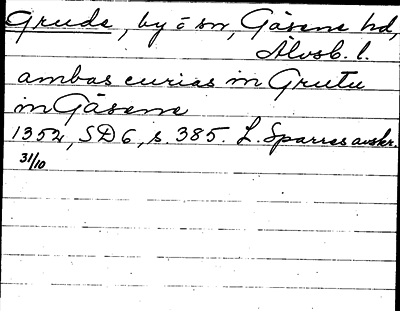 Grude, by o sn, Gäsene hd,
Älvsb. l.
ambas curias in Grutu
in Gäsene
1352, SD 6, s. 385. L. Sparres avskr.
31/10